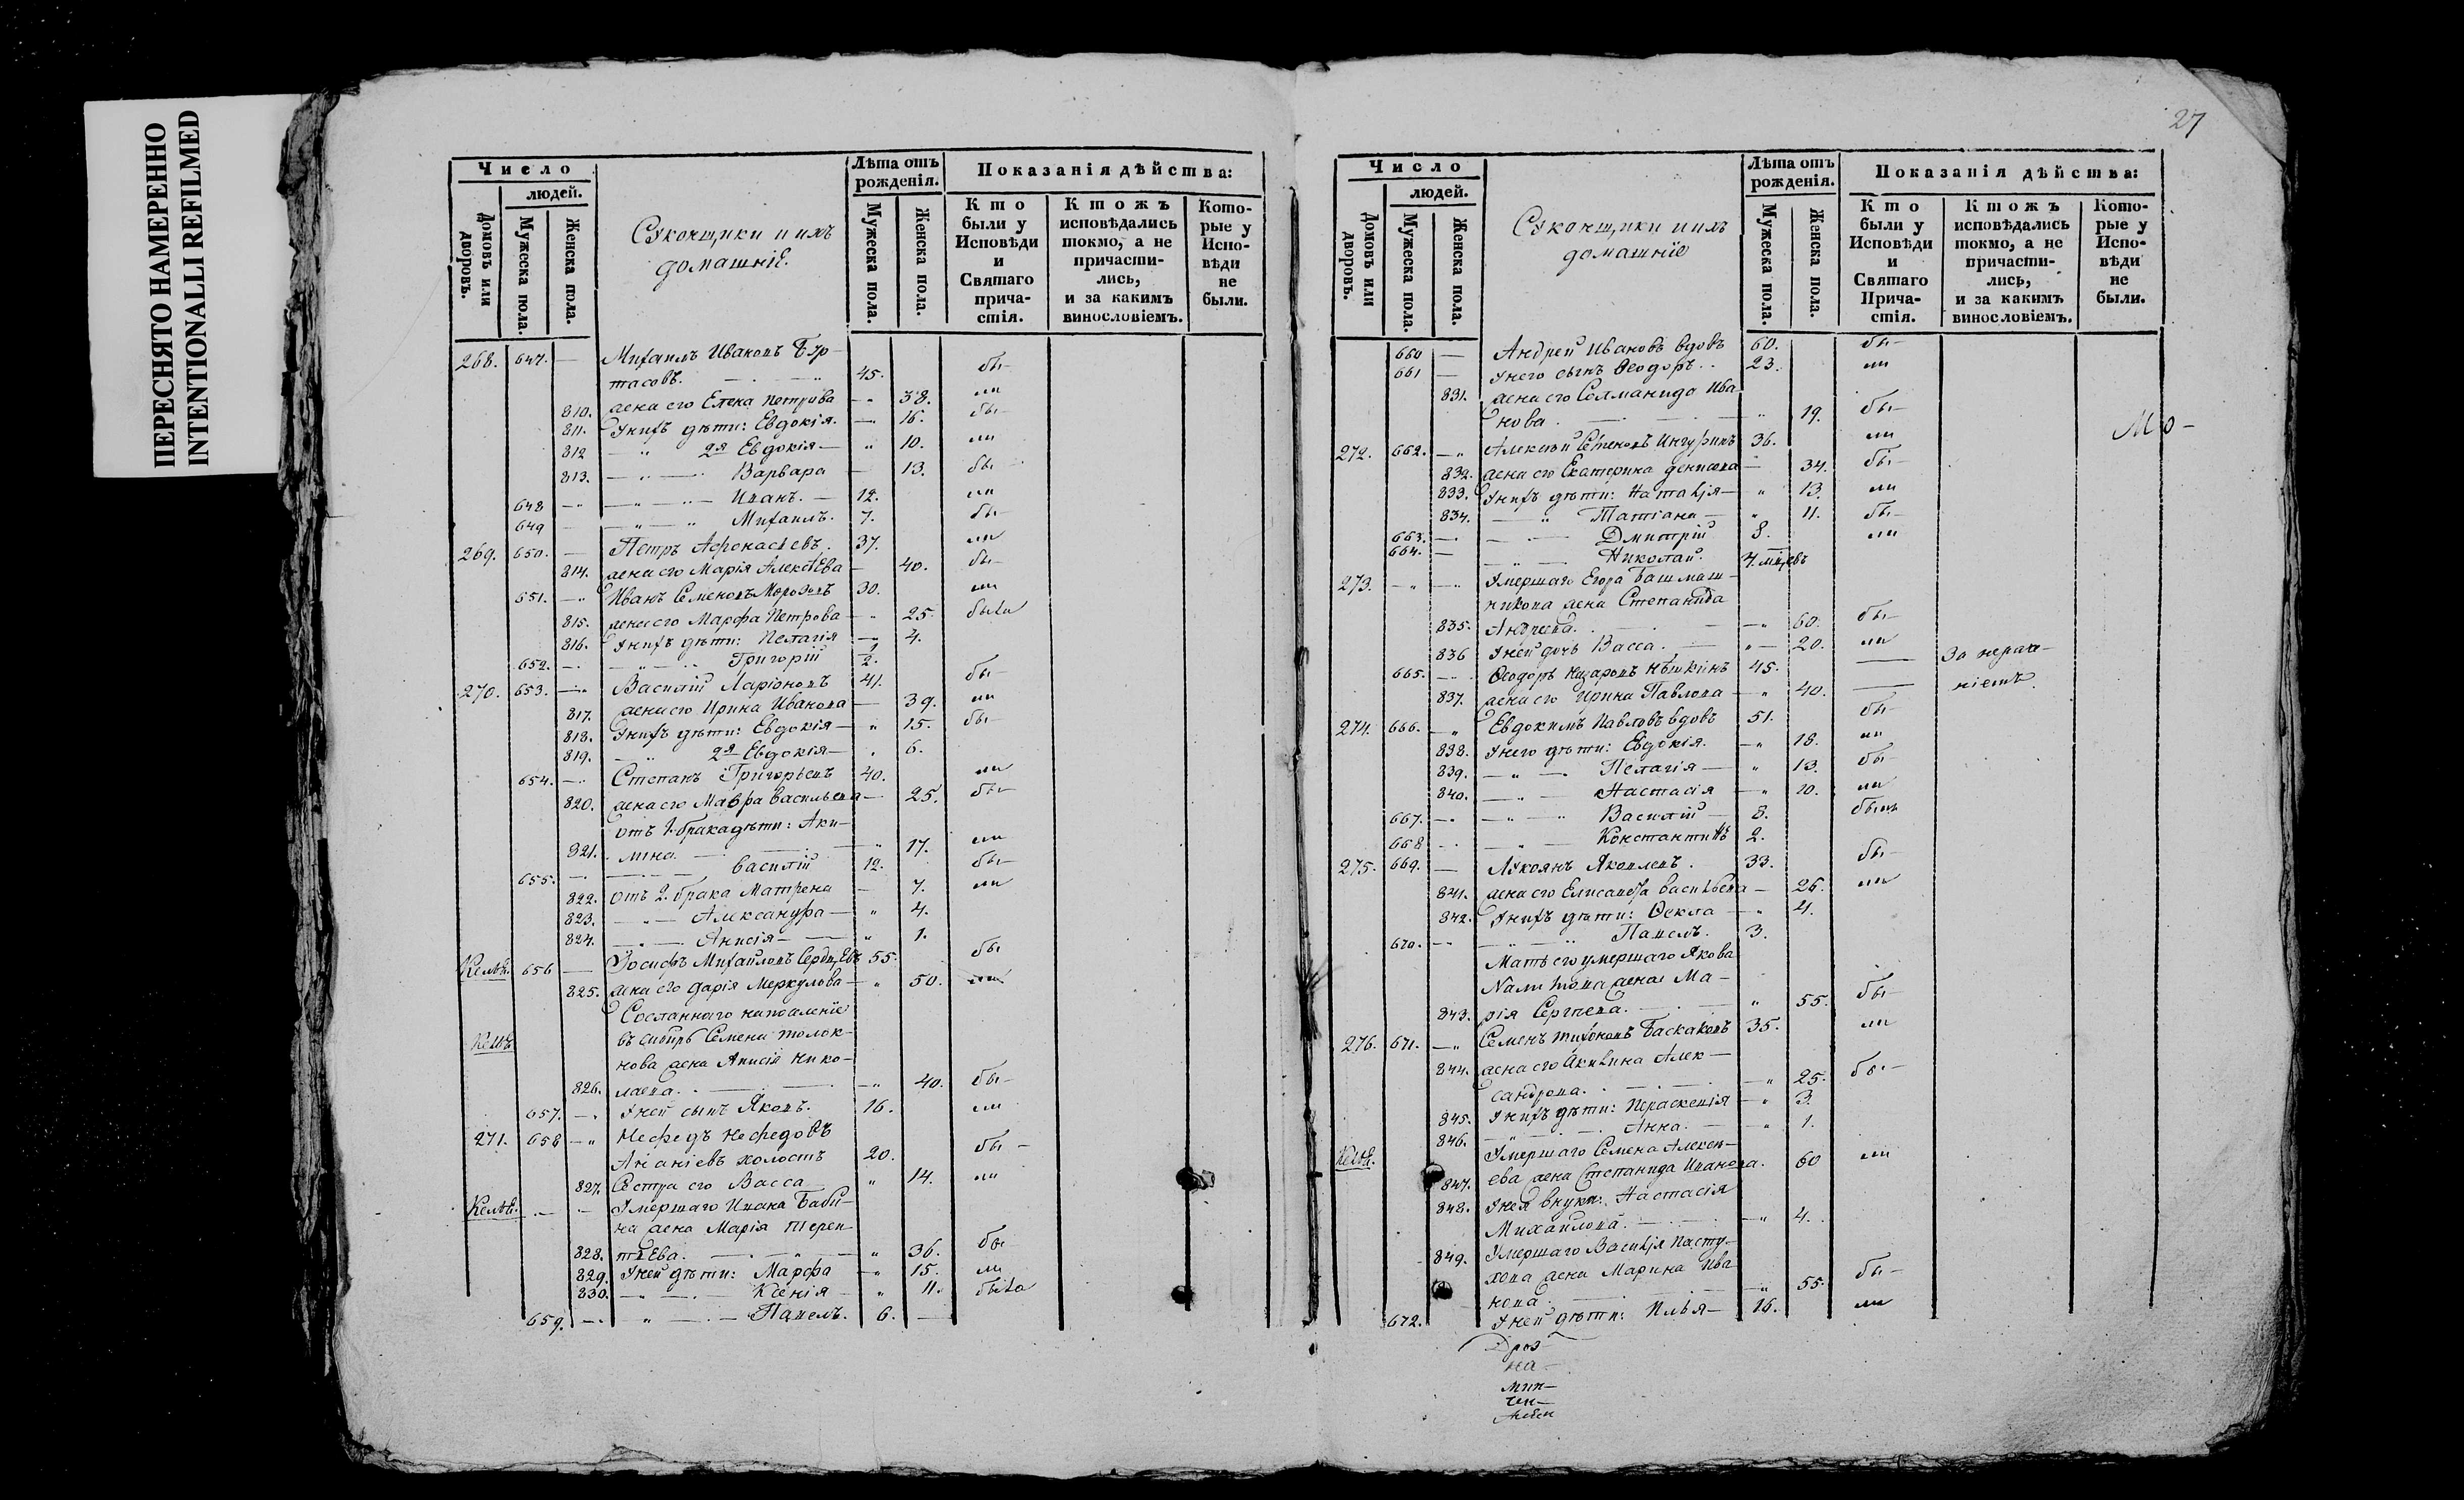 ПЕРЕСНЯТО НАМЕРЕННО
INTENTIONALLI REFILMED
Число
людей.
Домовъ или дворовъ.
Мужеска пола.
Женска пола.
Суконщики и ихъ
домашніе.
Лѣта отъ
рожденія.
Мужеска пола.
Женска пола.
Показанія дѣйства:
Кто были у Исповѣди и Святаго причастія.
Ктожъ исповѣдались токмо, а не причастились, и за какимъ винословіемъ.
Которые у Исповѣди не были.
268. 647. — Михаилъ Ивановъ Бур-
тасовъ. 45. бы-
810. жена его Елена Петрова 38. ли
811. У нихъ дѣти: Евдокія. 16. бы-
812 2я Евдокія 10. ли
813. Варвара 13. бы
648 Иванъ. 12. ли
649 Михаилъ. 7. бы-
269. 650. Петръ Афонасьевъ. 37. ли
814. жена его Марія Алексѣева 40. бы-
651. Иванъ Семеновъ Морозовъ 30. ли
815. жена его Марфа Петрова 25. были
816. У нихъ дѣти: Пелагія 4.
652. Григорій 1/2.
270. 653. Василій Ларіоновъ 41. бы-
817. жена его Ирина Иванова 39. ли
818. У нихъ дѣти: Евдокія 15. бы-
819. 2я Евдокія 6.
654. Степанъ Григорьевъ 40. ли
820. жена его Мавра Васильева 25. бы-
отъ 1. брака дѣти: Аку-
821. лина. 17. ли
655. Василій 12. бы-
822. отъ 2. брака Матрена 7. ли
823. Александра 4.
824. Анисія 1.
Келья. 656 Іосифъ Михайловъ Сердцевъ 55. бы
825. жена его Дарія Меркулова 50. ли
Сосланнаго на поселеніе
Келья въ Сибирь Семена Толок-
нова жена Анисія Нико-
826. лаева. 40. бы-
657. У ней сынъ Яковъ. 16. ли
271. 658 Нефедъ Нефедовъ
Ананіевъ холостъ 20. бы-
827. Сестра его Васса 14. ли
Келья. Умершаго Ивана Баби-
на жена Марія Терен-
828. тьева. 36. бы
829. У ней дѣти: Марфа 15. ли
830. Ксенія 11. была
659. Павелъ. 6.
27
Число
людей.
Домовъ или дворовъ.
Мужеска пола.
Женска пола.
Суконщики и ихъ
домашніе
Лѣта отъ
рожденія.
Мужеска пола.
Женска пола.
Показанія дѣйства:
Кто были у Исповѣди и Святаго Причастія.
Ктожъ исповѣдались токмо, а не причастились, и за какимъ винословіемъ.
Которые у Исповѣди не были.
660 Андрей Ивановъ вдовъ 60. бы-
661 У него сынъ Ѳеодоръ. 23. ли
831. жена его Соломанида Ива-
нова. 19. бы-
Мо-
272. 662. Алексѣй Семеновъ 36. ли
832. жена его Екатерина Денисова 34. бы-
833. У нихъ дѣти: Наталія 13. ли
834. Татіана 11. бы-
663. Дмитрій 8. ли
664. Николай. 7. мцевъ
273. Умершаго Егора Башмаш-
никова жена Степанида
835. Андреева. 60. бы-
836 У ней дочь Васса. 20. ли
665. Ѳеодоръ Назаровъ 45. За нерач-
837. жена его Ирина Павлова 40. ніемъ.
274. 666. Евдокимъ Павловъ вдовъ 51. бы-
838. У него дѣти: Евдокія. 18. ли
839. Пелагія 13. бы-
840. Настасія 10. ли
667. Василій 8. былъ
668 Константинъ 2.
275. 669. Лукоянъ Яковлевъ. 33. бы-
841. жена его Елисавеѳа Васильева 26. ли
842. У нихъ дѣти: Ѳекла 4.
670. Павелъ. 3.
Мать его умершаго Якова
жена Ма-
843. рія Сергѣева. 55. бы-
276. 671. Семенъ Тихоновъ Баскаковъ 35. ли
844. жена его Акилина Алек-
сандрова. 25. бы-
845. У нихъ дѣти: Параскевія 3.
846. Анна. 1.
Келья. Умершаго Семена Алексѣ-
847. ева жена Степанида Иванова. 60 ли
848. У нея внука: Настасія
Михайлова. 4.
849. Умершаго Василія Пасту-
хова жена Марина Ива-
нова. 55. бы-
672. У ней дѣти: Илья 16. ли